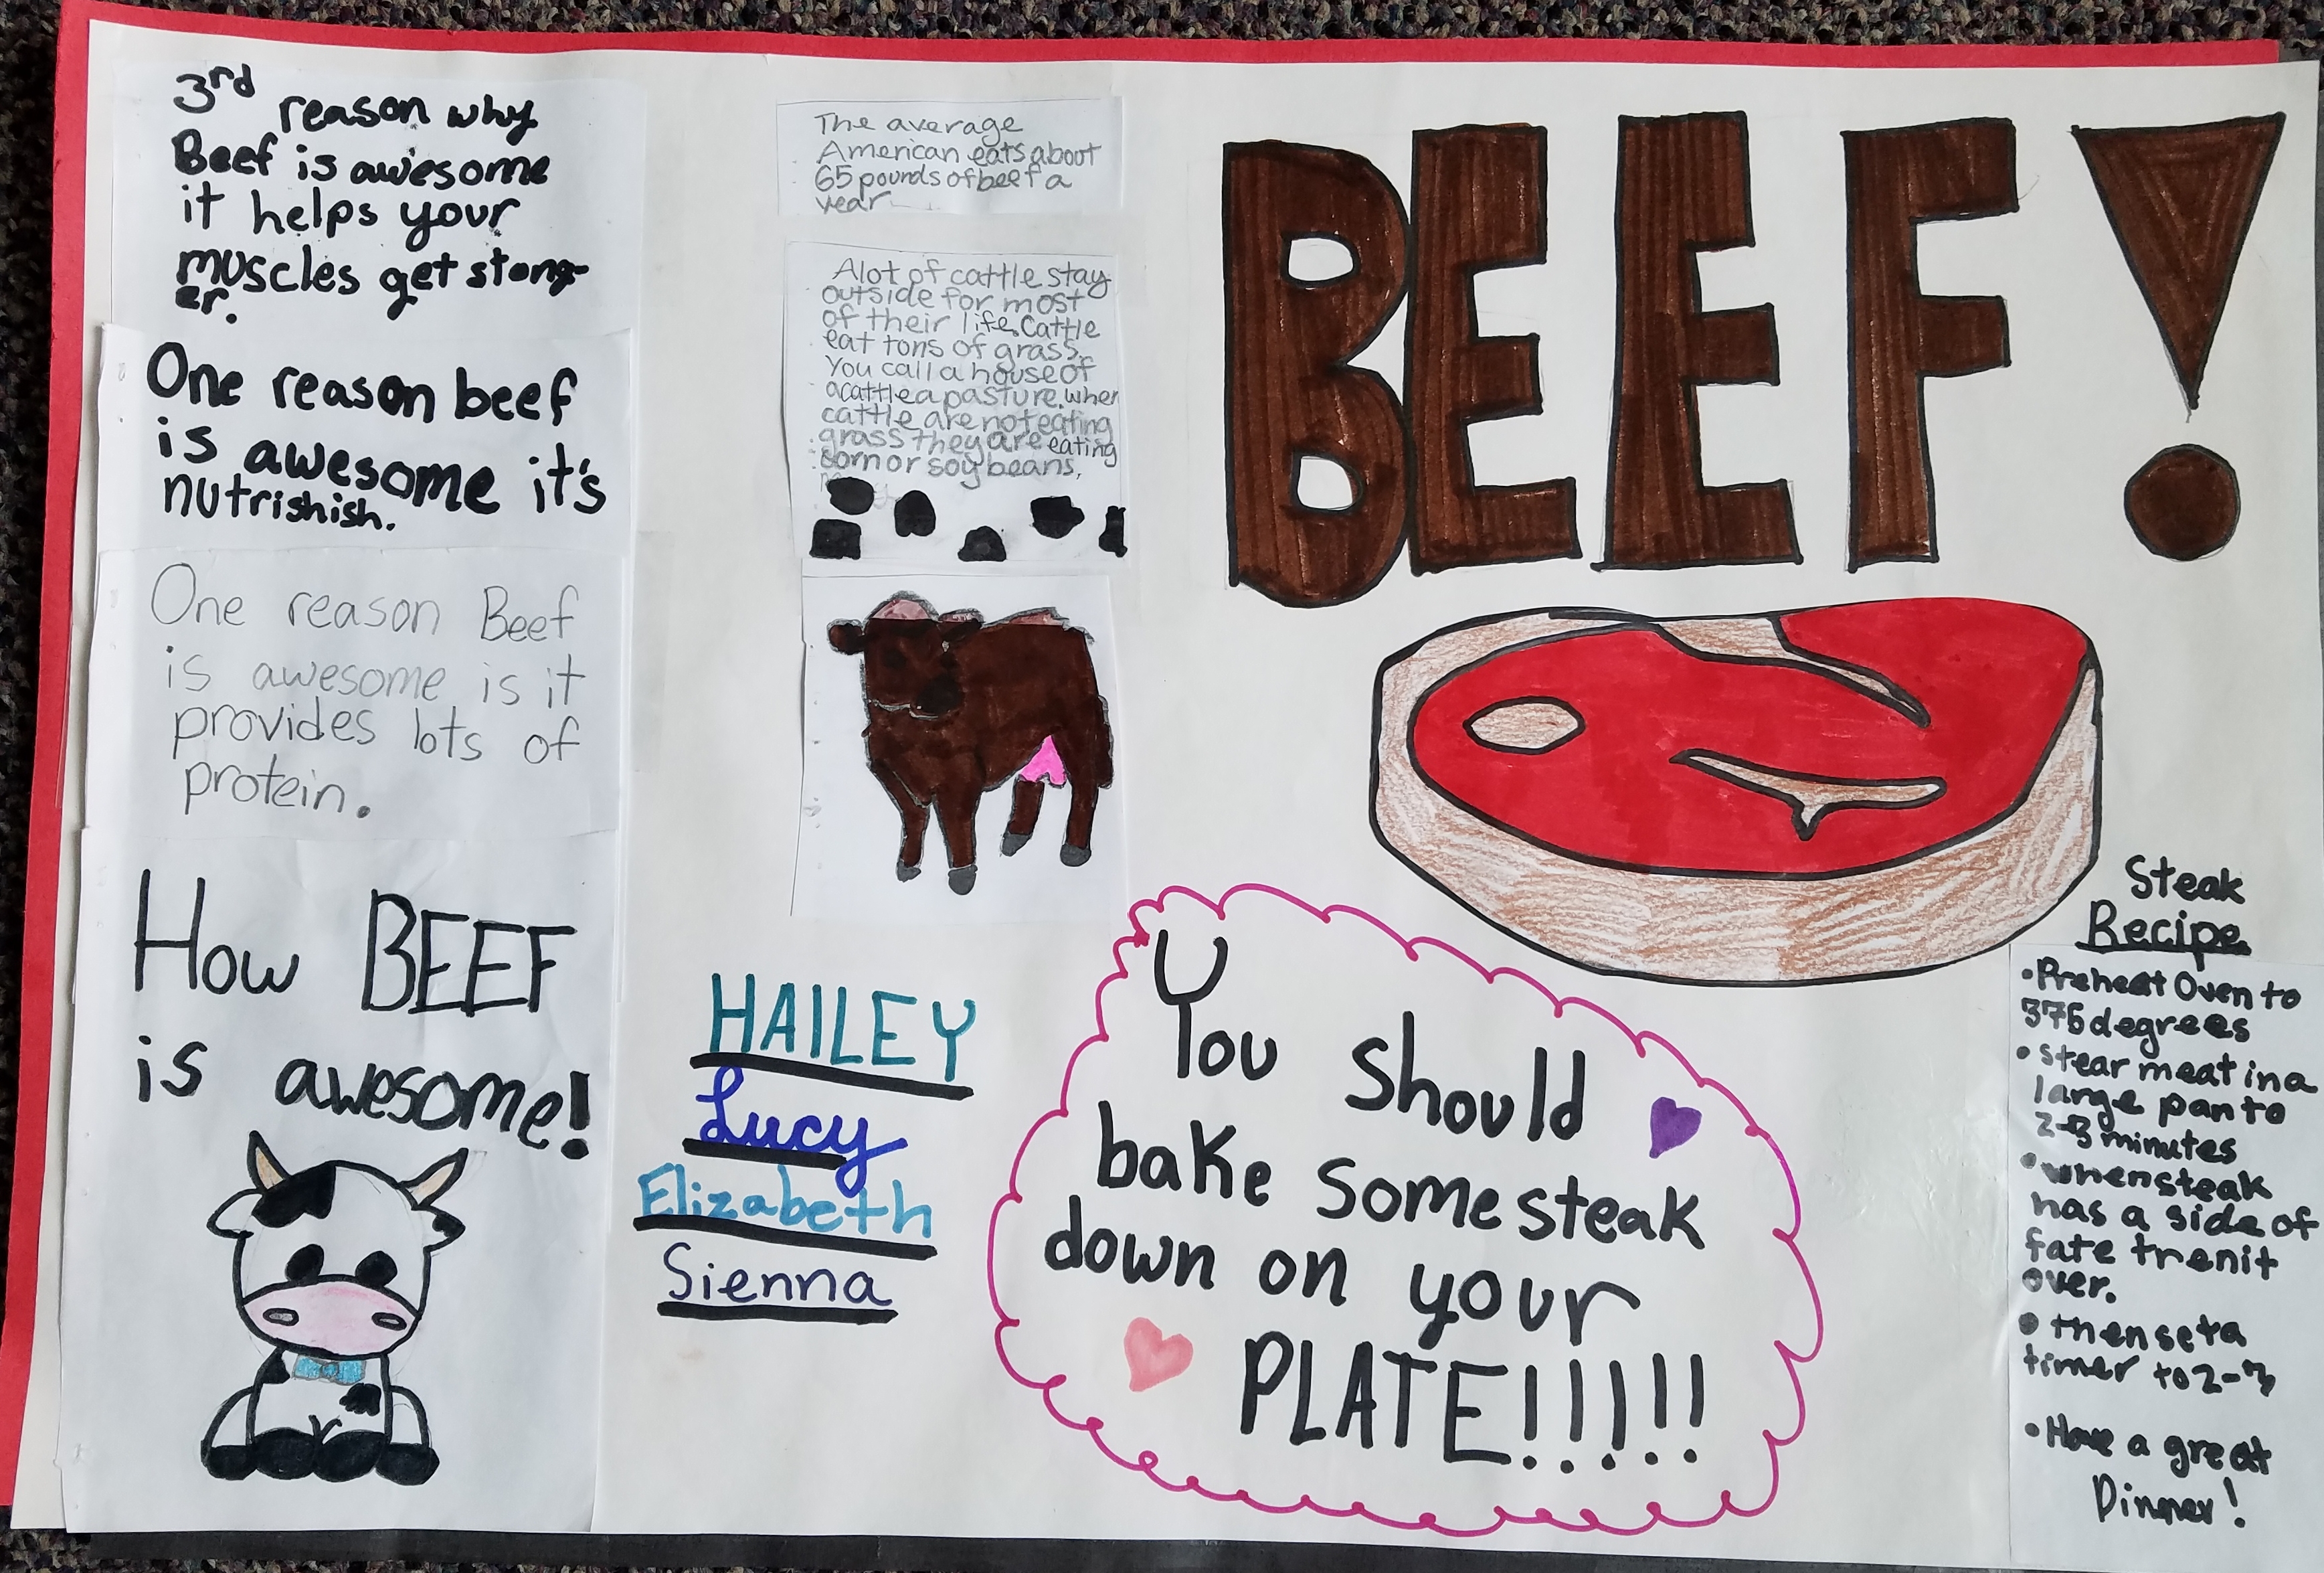 3rd reason why
Beef is awesome
it helps your
muscles get stong-
er.
One reason beef
is awesome it's
nutrishish.
One reason Beef
is awesome is it
provides lots of
protein.
How BEEF
is awesome!
The average
American eats about
65 pounds of beef a
year
Alot of cattle stay
outside for most
of their life. Cattle
eat tons of grass.
You call a house of
a cattle a pasture. when
cattle are not eating
grass they are eating
corn or soy beans,
HAILEY
Lucy
Elizabeth
Sienna
BEEF!
You should
bake some steak
down on your
PLATE!!!!!
Steak
Recipe
•Preheat Oven to
375 degrees
•stear meat in a
large pan to
2-3 minutes
•when steak
has a side of
fate then it
over.
•then set a
timer to 2-3
•Have a great
Dinner!